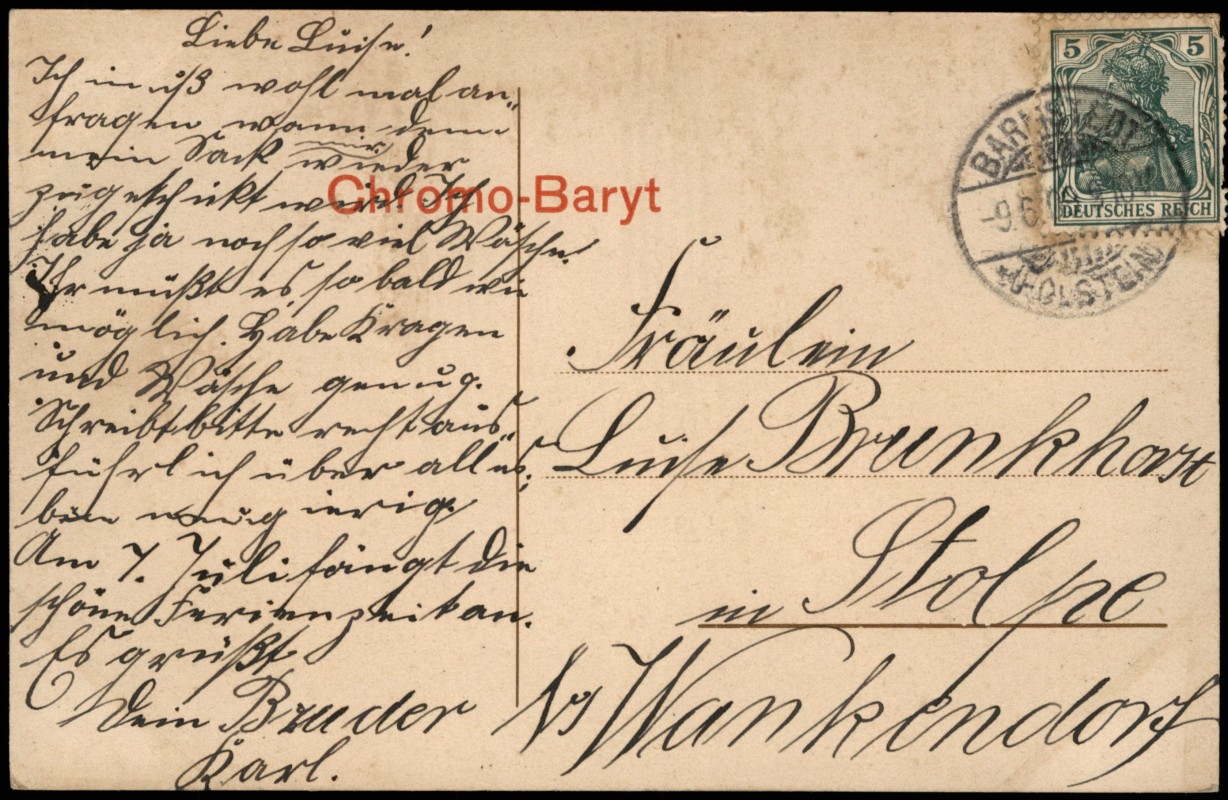 Liebe Luise!
Ich muß wohl mal an-
fragen, wann denn
mein Sack mir wieder
zugeschickt wird. Ich
habe ja noch so viel Wäsche.
Ihr müßt es so bald wie
möglich. Habe Kragen
und Wäsche genug.
Schreibt bitte recht aus-
führlich über alles,
bin neugierig.
Am 7. Juli fängt die
schöne Ferienzeit an.
Es grüßt
Dein Bruder
Karl.
Chromo-Baryt
5 5
DEUTSCHES REICH
BARMSTEDT
-9.6.
(HOLSTEIN)
Fräulein
Luise Brunkhorst
in Stolpe
b/ Wankendorf